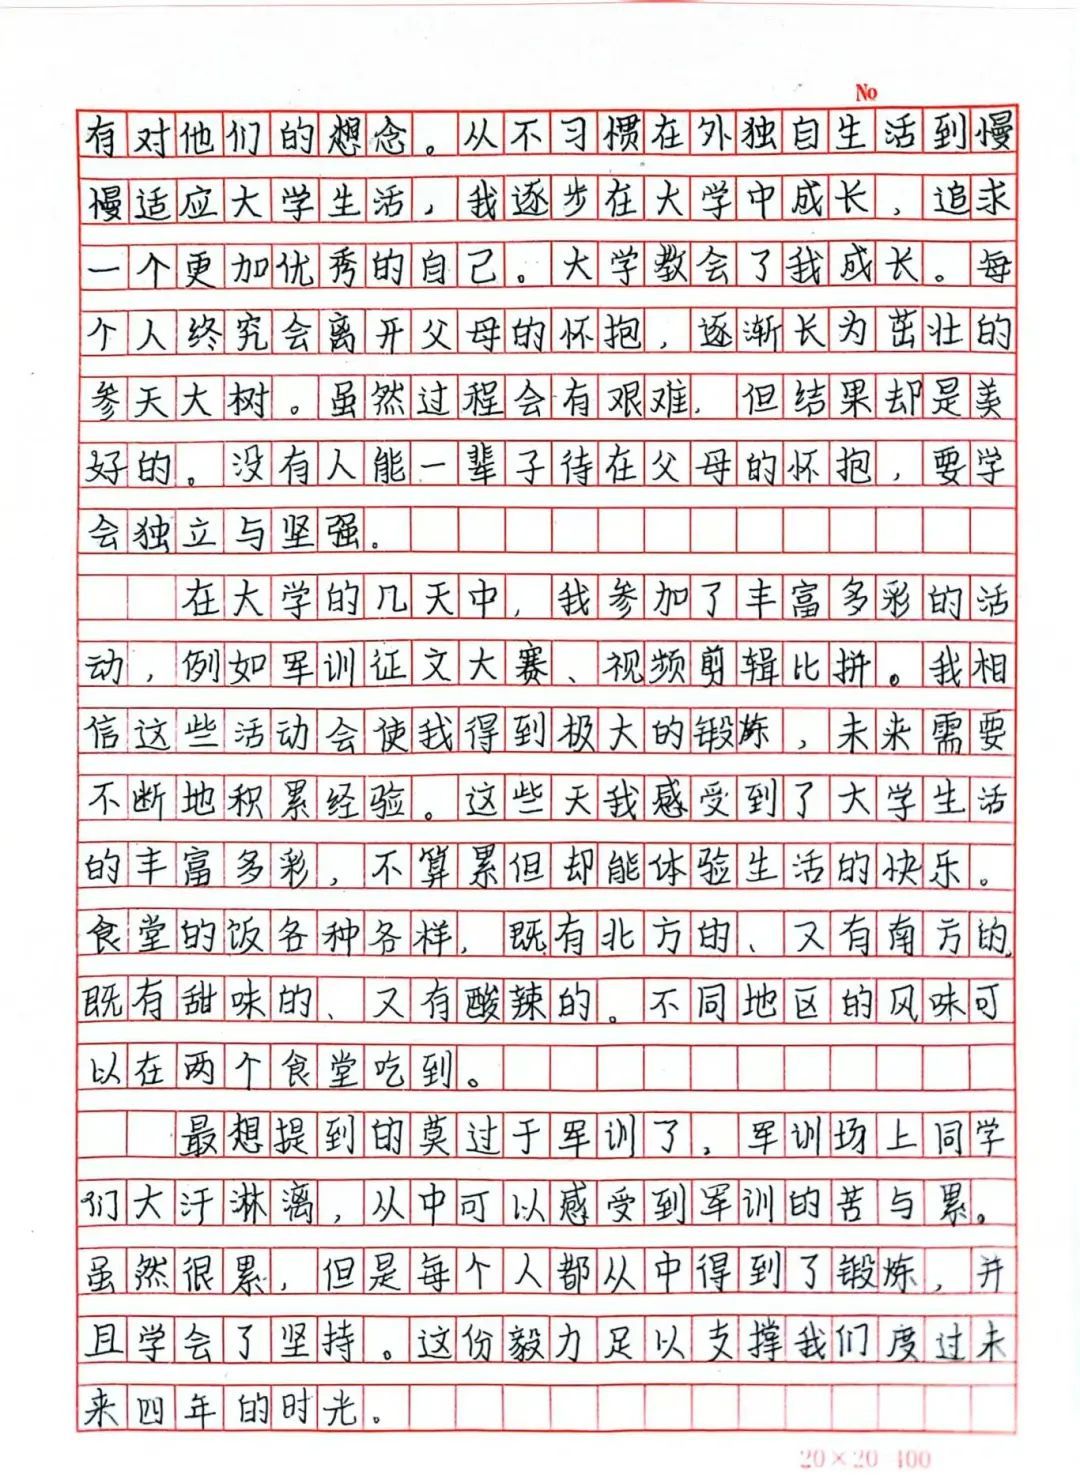 No
有对他们的想念。从不习惯在外独自生活到慢
慢适应大学生活，我逐步在大学中成长，追求
一个更加优秀的自己。大学教会了我成长。每
个人终究会离开父母的怀抱，逐渐长为茁壮的
参天大树。虽然过程会有艰难，但结果却是美
好的。没有人能一辈子待在父母的怀抱，要学
会独立与坚强。
在大学的几天中，我参加了丰富多彩的活
动，例如军训征文大赛、视频剪辑比拼。我相
信这些活动会使我得到极大的锻炼，未来需要
不断地积累经验。这些天我感受到了大学生活
的丰富多彩，不算累但却能体验生活的快乐。
食堂的饭各种各样，既有北方的、又有南方的，
既有甜味的、又有酸辣的。不同地区的风味可
以在两个食堂吃到。
最想提到的莫过于军训了。军训场上同学
们大汗淋漓，从中可以感受到军训的苦与累。
虽然很累，但是每个人都从中得到了锻炼，并
且学会了坚持。这份毅力足以支撑我们度过未
来四年的时光。
20×20=400